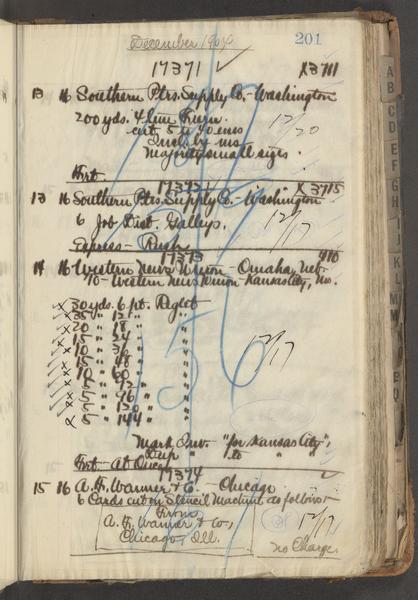 December 1904
201
17371 ✓ X3711
13 16 Southern Ptrs. Supply Co. - Washington
200 yds. 4 line Furn.
cut 5 to 40 ems 12/20
Incl. by ms
Majority small sizes.
Frt.
17372 X3715
13 16 Southern Ptrs. Supply Co. - Washington
6 Job Galleys. 12/17
Express - Rush
17373 410
14 16 Western News Union - Omaha, Neb.
to - Western News Union - Kansas City, Mo.
x 30 yds. 6 pt. Reglet
x 35 " 12 " "
x 20 " 18 " "
x 15 " 24 " "
x 10 " 36 " "
x 15 " 48 " "
x 10 " 60 " "
x 5 " 72 " "
x 5 " 96 " "
x 5 " 120 " "
x 5 " 144 " "
12/17
156
Mark Inv. "for Kansas City",
" " to "
Frt - At Once
17374
15 16 A. H. Warner & Co. - Chicago
6 Cards cut on Stencil Machine as follows:-
From
A. H. Warner & Co., 12/17
Chicago, Ill.
No Charge.
A
B
C
D
E
F
G
H
I
J
K
L
M